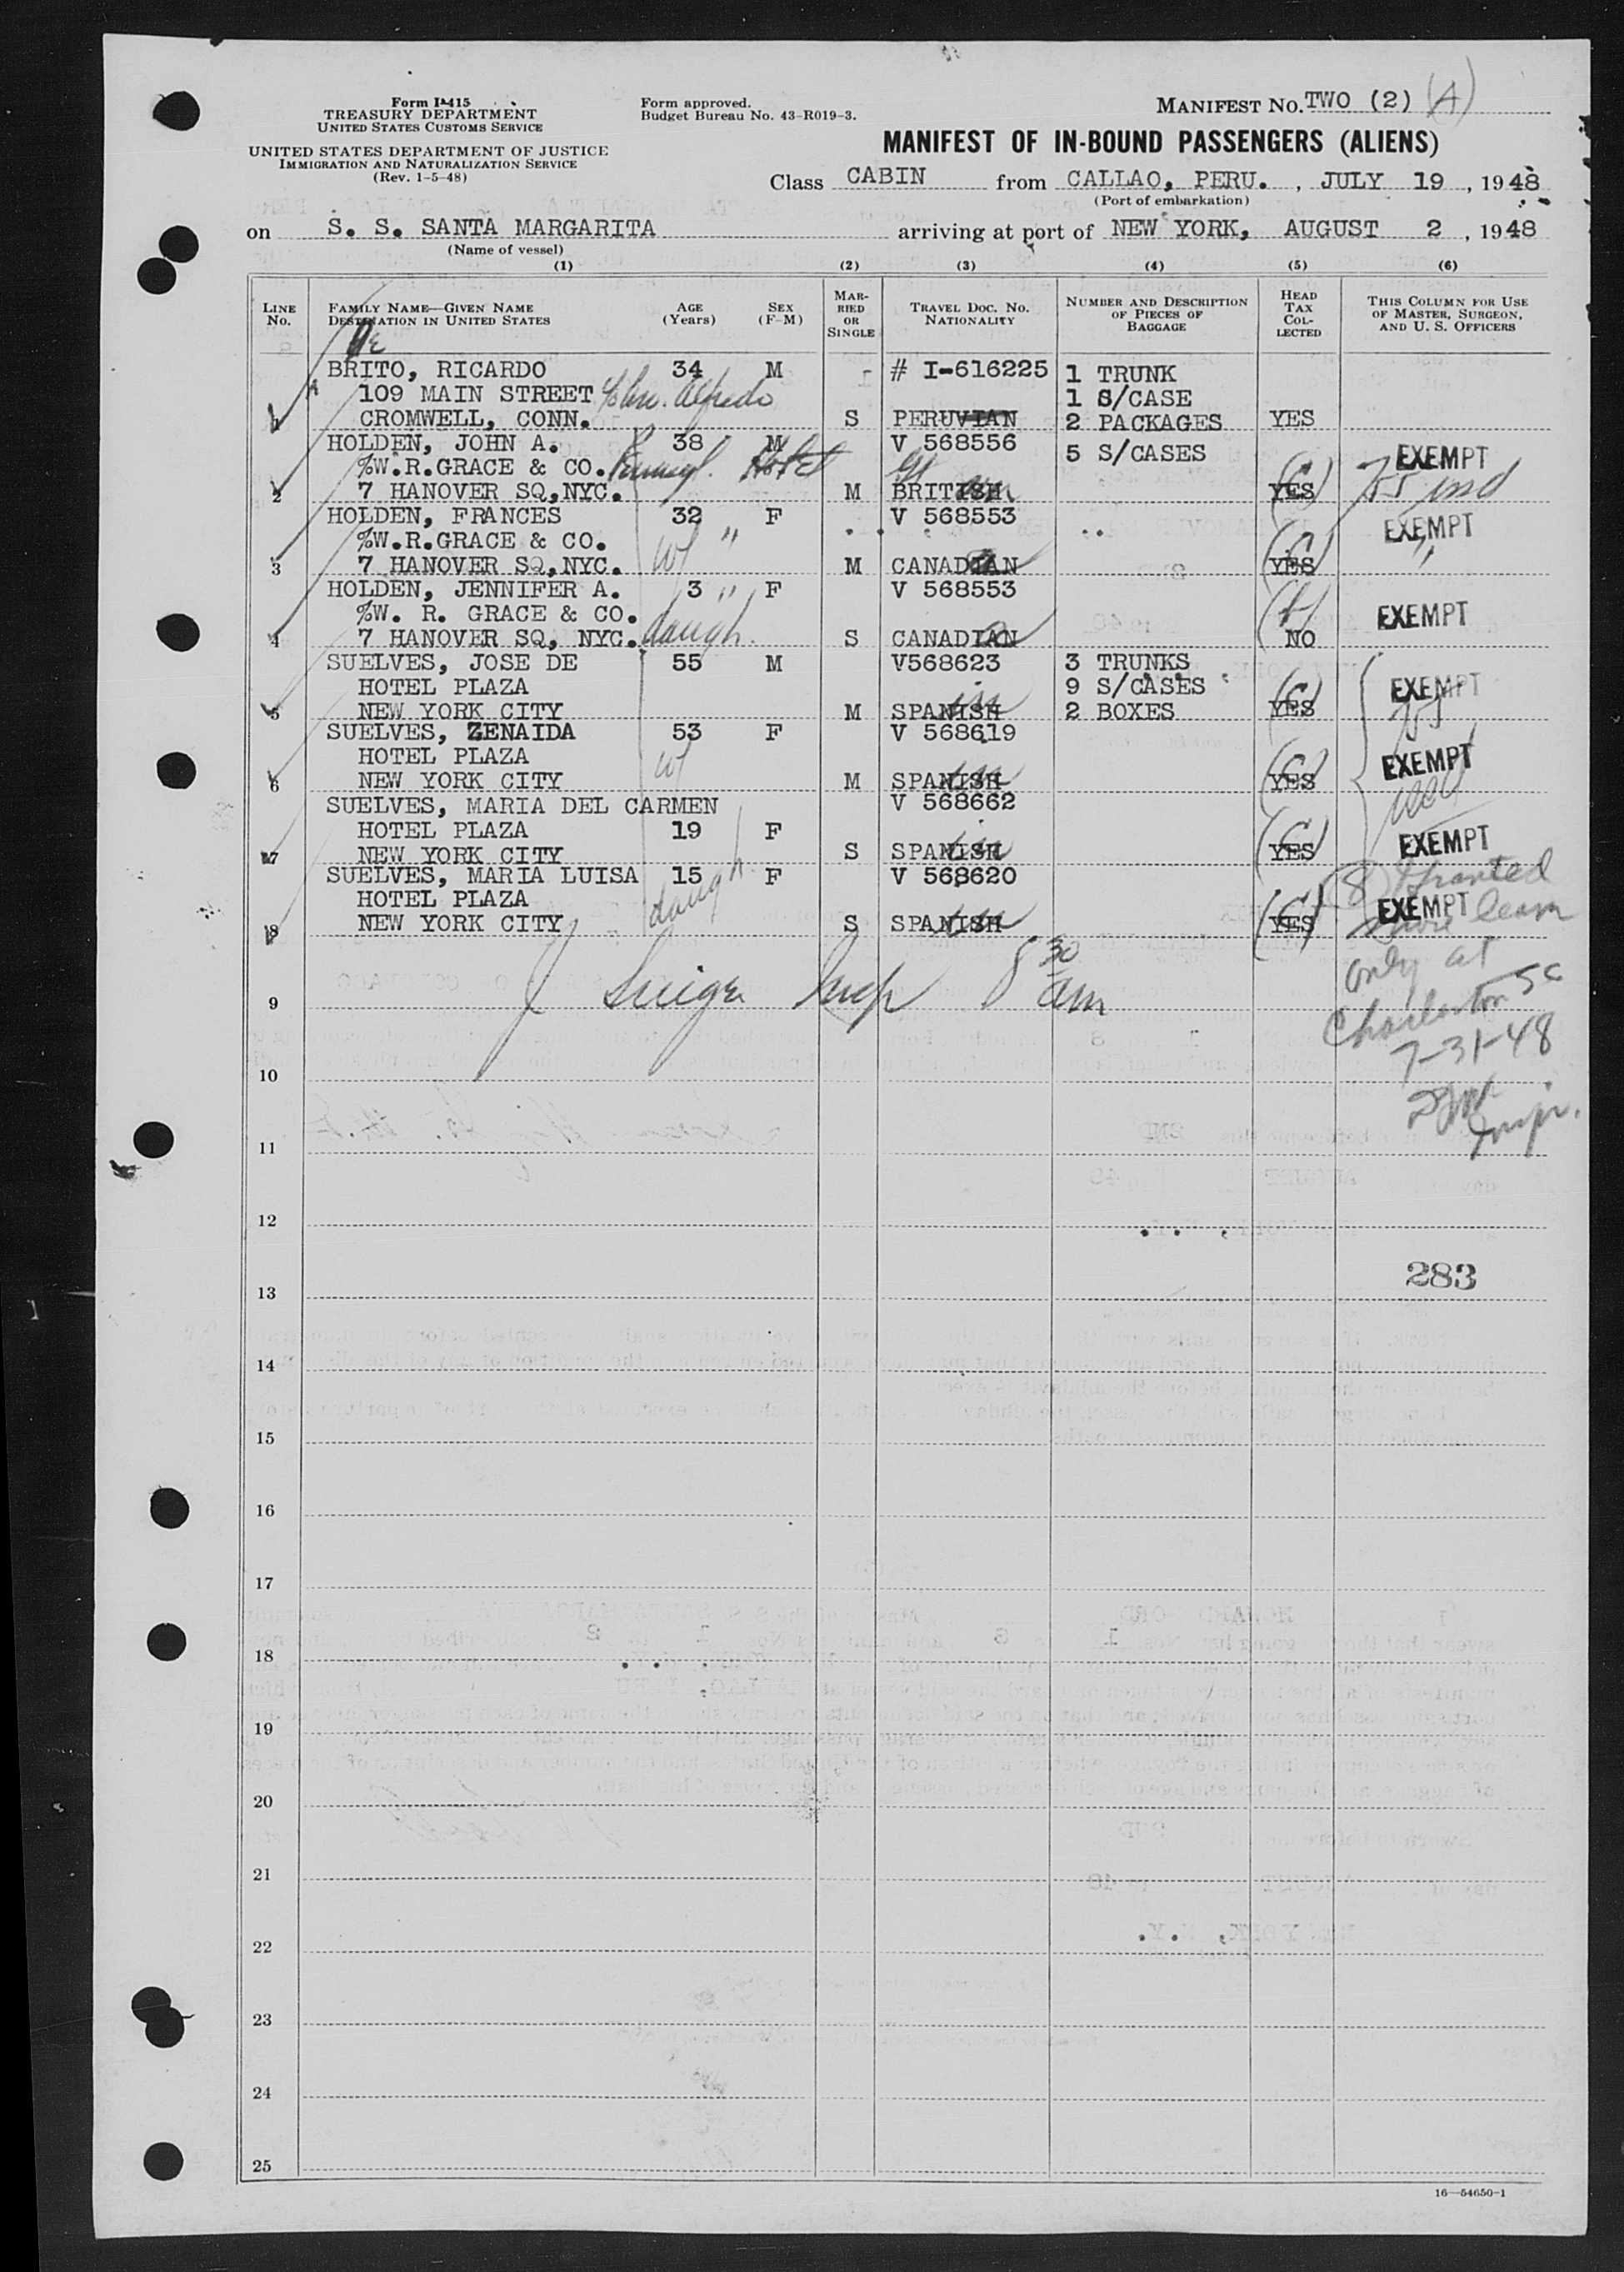 Form I-415
TREASURY DEPARTMENT
UNITED STATES CUSTOMS SERVICE
UNITED STATES DEPARTMENT OF JUSTICE
IMMIGRATION AND NATURALIZATION SERVICE
(Rev. 1-5-48)
Form approved.
Budget Bureau No. 43-R019-3.
MANIFEST NO. TWO (2) (A)
MANIFEST OF IN-BOUND PASSENGERS (ALIENS)
Class CABIN from CALLAO, PERU. , JULY 19 , 1948
(Port of embarkation)
on S. S. SANTA MARGARITA arriving at port of NEW YORK, AUGUST 2 , 1948
(Name of vessel)
(1) (2) (3) (4) (5) (6)
LINE No. FAMILY NAME—GIVEN NAME DESTINATION IN UNITED STATES AGE (Years) SEX (F-M) MARRIED OR SINGLE TRAVEL DOC. NO. NATIONALITY NUMBER AND DESCRIPTION OF PIECES OF BAGGAGE HEAD TAX COLLECTED THIS COLUMN FOR USE OF MASTER, SURGEON, AND U. S. OFFICERS
De
BRITO, RICARDO 34 M # I-616225 1 TRUNK
A 109 MAIN STREET Alfredo 1 S/CASE
1 CROMWELL, CONN. S PERUVIAN 2 PACKAGES YES
HOLDEN, JOHN A. 38 M V 568556 5 S/CASES EXEMPT
%W.R.GRACE & CO. Hotel
2 7 HANOVER SQ,NYC. M BRITISH YES
HOLDEN, FRANCES 32 F V 568553 EXEMPT
%W.R.GRACE & CO. wf "
3 7 HANOVER SQ,NYC. M CANADIAN YES "
HOLDEN, JENNIFER A. 3 " F V 568553
%W. R. GRACE & CO. EXEMPT
4 7 HANOVER SQ, NYC. daugh. S CANADIAN NO
SUELVES, JOSE DE 55 M V568623 3 TRUNKS
HOTEL PLAZA 9 S/CASES EXEMPT
5 NEW YORK CITY M SPANISH 2 BOXES (C) YES
SUELVES, ZENAIDA 53 F V 568619
HOTEL PLAZA wf EXEMPT
6 NEW YORK CITY M SPANISH (C) YES
SUELVES, MARIA DEL CARMEN V 568662
HOTEL PLAZA 19 F EXEMPT
7 NEW YORK CITY S SPANISH (C) YES
SUELVES, MARIA LUISA 15 F V 568620 (8) Granted
HOTEL PLAZA daugh. EXEMPT
8 NEW YORK CITY S SPANISH (C) YES shore leave
only at
Insp 8 30 am
9
Charleston SC
7-31-48
10
Inspr.
11
12
283
13
14
15
16
17
18
19
20
21
22
23
24
25
16—54650-1